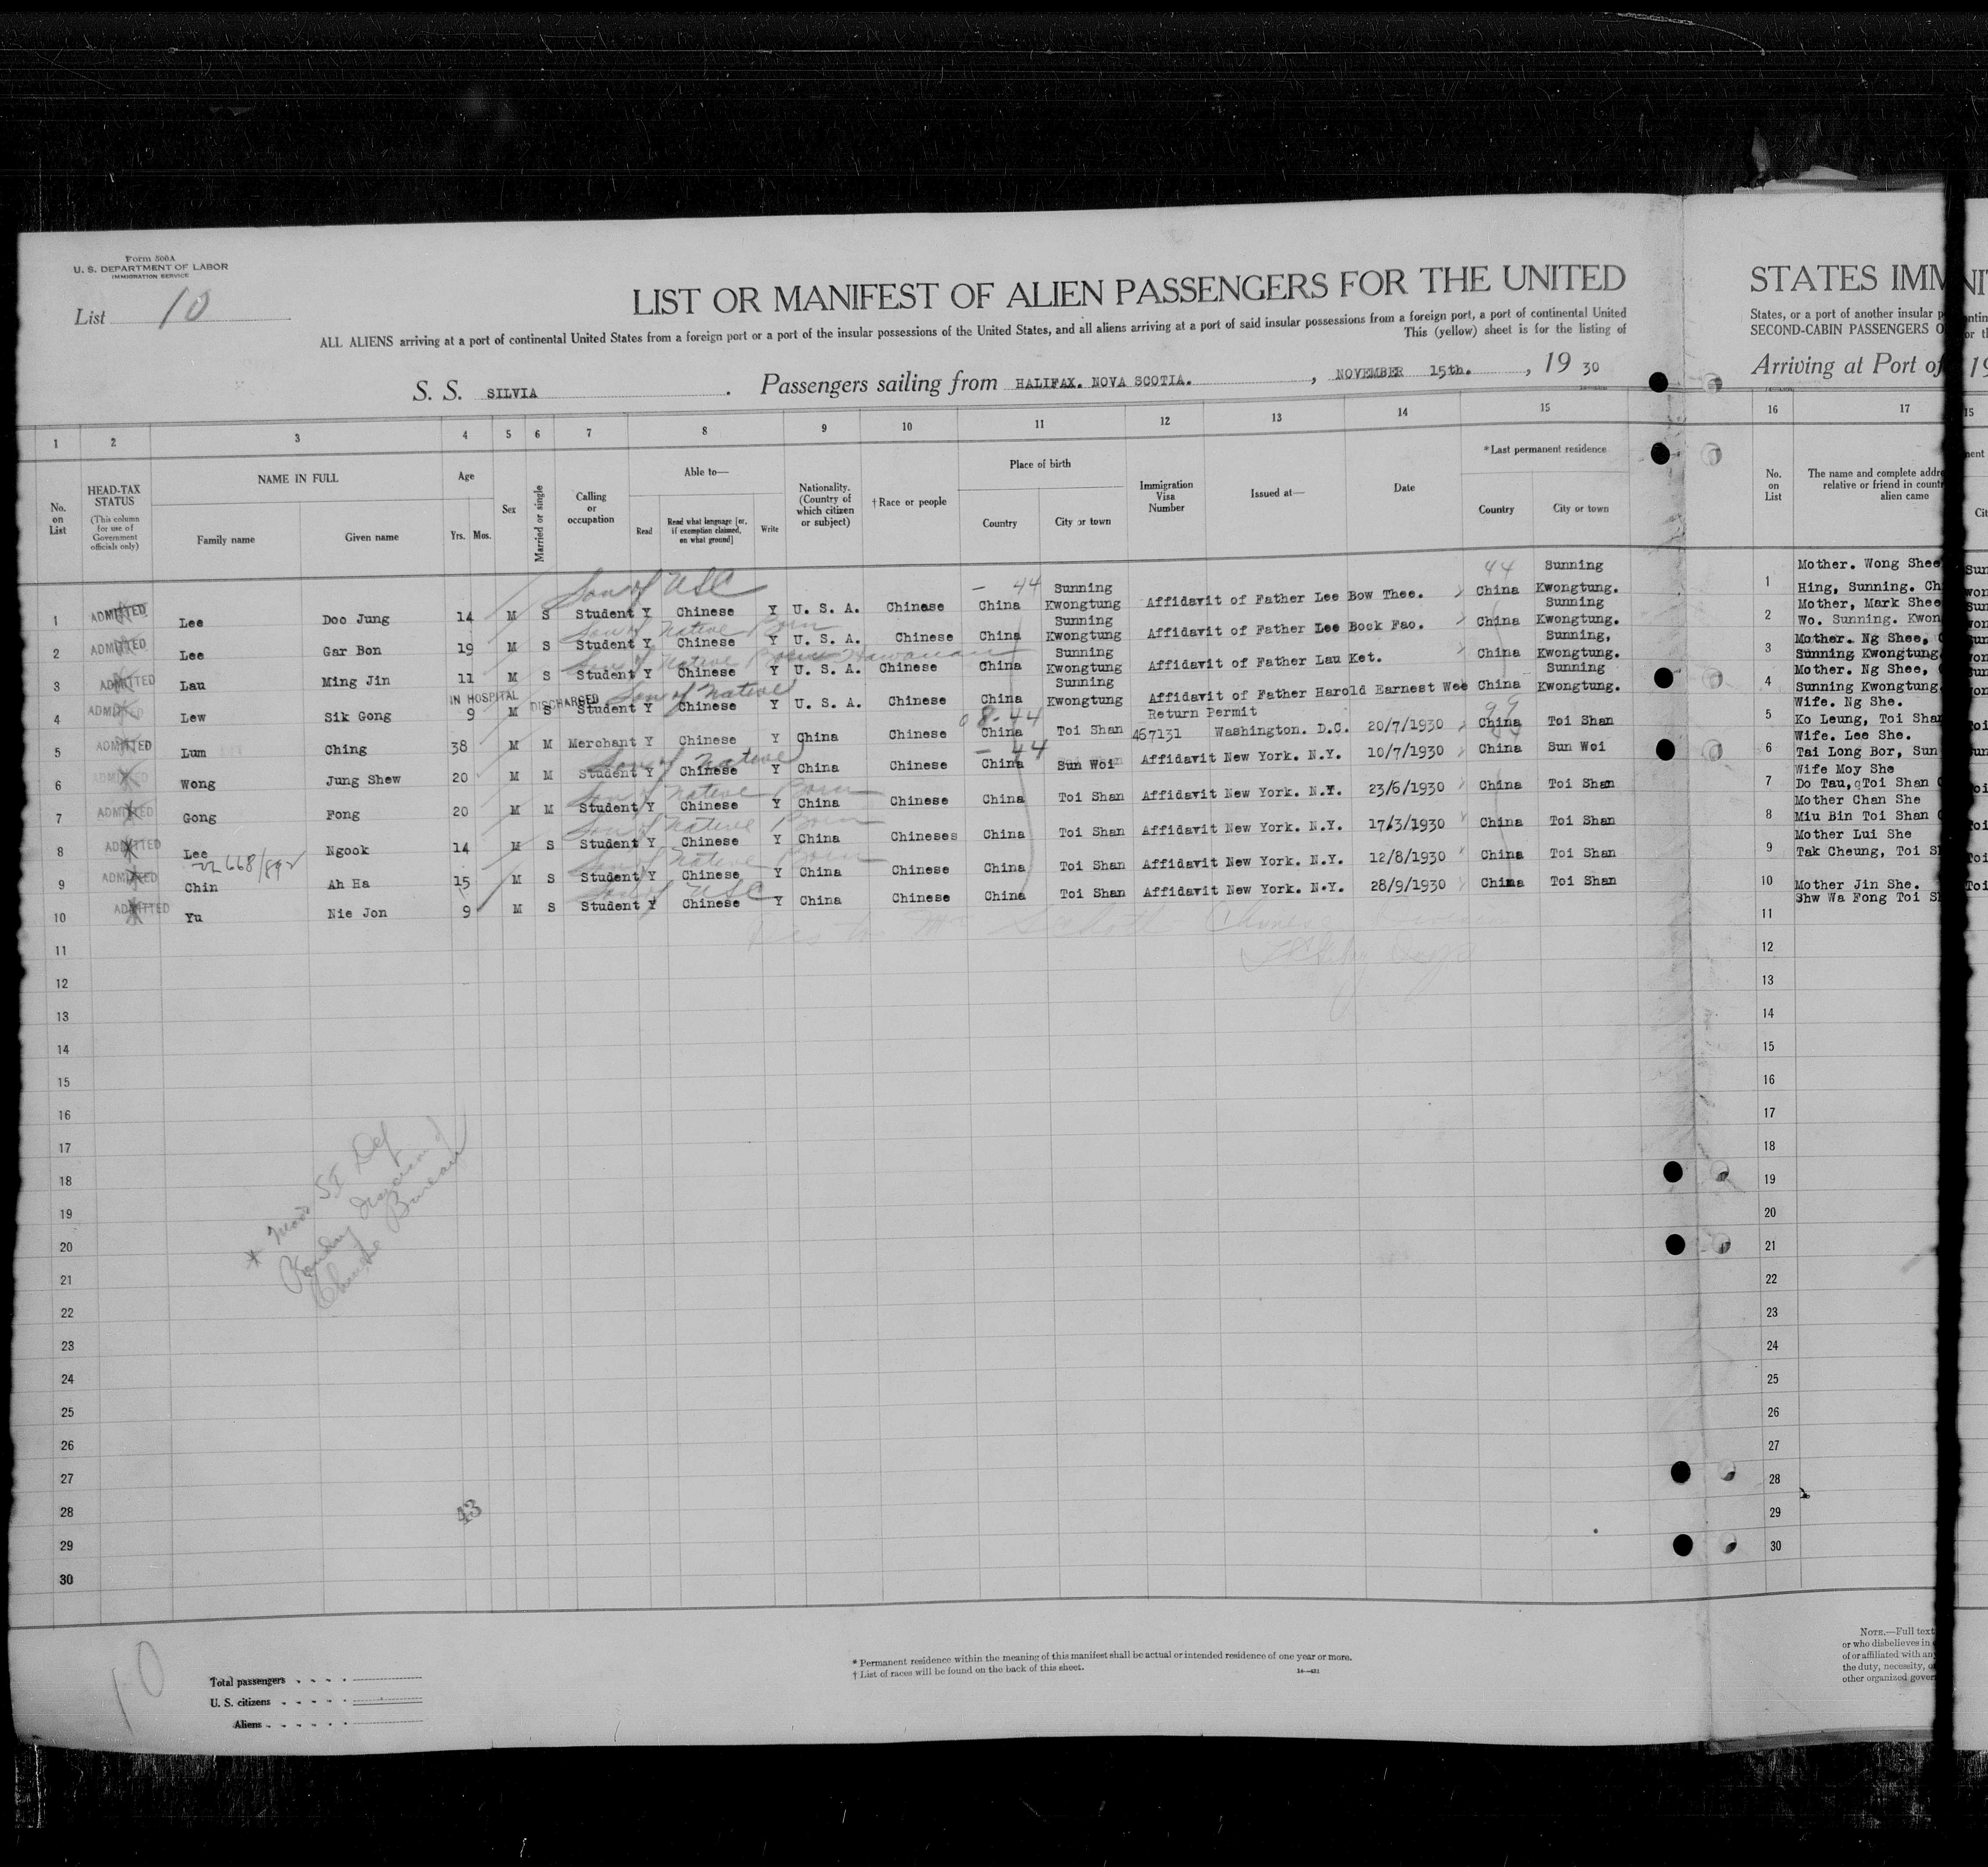 Form 500A
U. S. DEPARTMENT OF LABOR
IMMIGRATION SERVICE
List 10
LIST OR MANIFEST OF ALIEN PASSENGERS FOR THE UNITED
STATES IMM
ALL ALIENS arriving at a port of continental United States from a foreign port or a port of the insular possessions of the United States, and all aliens arriving at a port of said insular possessions from a foreign port, a port of continental United
States, or a port of another insular
This (yellow) sheet is for the listing of
SECOND-CABIN PASSENGERS O
S. S. SILVIA. Passengers sailing from HALIFAX. NOVA SCOTIA., NOVEMBER 15th., 19 30
Arriving at Port of
1 2 3 4 5 6 7 8 9 10 11 12 13 14 15 16 17
No. on List
HEAD-TAX STATUS
(This column for use of Government officials only)
NAME IN FULL
Family name
Given name
Age
Yrs. Mos.
Sex
Married or single
Calling or occupation
Able to—
Read
Read what language [or, if exemption claimed, on what ground]
Write
Nationality. (Country of which citizen or subject)
† Race or people
Place of birth
Country
City or town
Immigration Visa Number
Issued at—
Date
* Last permanent residence
Country
City or town
No. on List
The name and complete addre
relative or friend in countr
alien came
Son of USC
— 44 Sunning 44 Sunning Mother. Wong Shee
1 ADMITTED Lee Doo Jung 14 M S Student Y Chinese Y U. S. A. Chinese China Kwongtung Affidavit of Father Lee Bow Thee. China Kwongtung. 1 Hing, Sunning. Ch
Son of Native Born Sunning Sunning Mother, Mark Shee
2 ADMITTED Lee Gar Bon 19 M S Student Y Chinese Y U. S. A. Chinese China Kwongtung Affidavit of Father Lee Bock Fao. China Kwongtung. 2 Wo. Sunning. Kwon
Son of Native Born Hawaiian Sunning Sunning, Mother. Ng Shee,
3 ADMITTED Lau Ming Jin 11 M S Student Y Chinese Y U. S. A. Chinese China Kwongtung Affidavit of Father Lau Ket. China Kwongtung. 3 Sunning Kwongtung
IN HOSPITAL DISCHARGED Son of Native Sunning Sunning Mother. Ng Shee,
4 ADMITTED Lew Sik Gong 9 M S Student Y Chinese Y U. S. A. Chinese China Kwongtung Affidavit of Father Harold Earnest Wee China Kwongtung. 4 Sunning Kwongtung
8-44 Return Permit 99 Wife. Ng She.
5 ADMITTED Lum Ching 38 M M Merchant Y Chinese Y China Chinese China Toi Shan 467131 Washington. D.C. 20/7/1930 China Toi Shan 5 Ko Leung, Toi Shan
Son of Native — 44 Wife. Lee She.
6 ADMITTED Wong Jung Shew 20 M M Student Y Chinese Y China Chinese China Sun Woi Affidavit New York. N.Y. 10/7/1930 China Sun Woi 6 Tai Long Bor, Sun
Son of Native Born Wife Moy She
7 ADMITTED Gong Fong 20 M M Student Y Chinese Y China Chinese China Toi Shan Affidavit New York. N.Y. 23/6/1930 China Toi Shan 7 Do Tau, Toi Shan
Son of Native Born Mother Chan She
8 ADMITTED Lee Ngook 14 M S Student Y Chinese Y China Chineses China Toi Shan Affidavit New York. N.Y. 17/3/1930 China Toi Shan 8 Miu Bin Toi Shan
Son of Native Born Mother Lui She
9 ADMITTED Chin Ah Ha 15 M S Student Y Chinese Y China Chinese China Toi Shan Affidavit New York. N.Y. 12/8/1930 China Toi Shan 9 Tak Cheung, Toi S
Son of USC Mother Jin She.
10 ADMITTED Yu Nie Jon 9 M S Student Y Chinese Y China Chinese China Toi Shan Affidavit New York. N.Y. 28/9/1930 China Toi Shan 10 Shw Wa Fong Toi S
11 11
12 12
13 13
14 14
15 15
16 16
17 17
18 18
19 19
20 20
21 21
22 22
23 23
24 24
25 25
26 26
27 27
28 28
29 29
30 30
Chinese Bureau
43
10
Total passengers
U. S. citizens
Aliens
* Permanent residence within the meaning of this manifest shall be actual or intended residence of one year or more.
† List of races will be found on the back of this sheet.
NOTE.—Full text
or who disbelieves in
of or affiliated with an
the duty, necessity, o
other organized gover